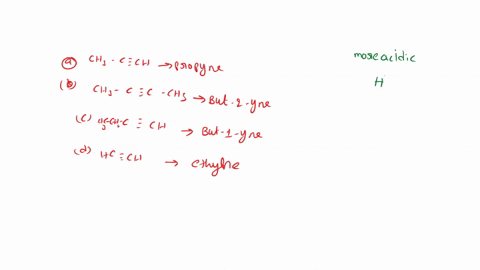 (a) CH3 - C≡CH → propyne
(b) CH3 - C≡C - CH3 → But-2-yne
(c) H3CH2C-C≡CH → But-1-yne
(d) HC≡CH → ethyne
more acidic
H